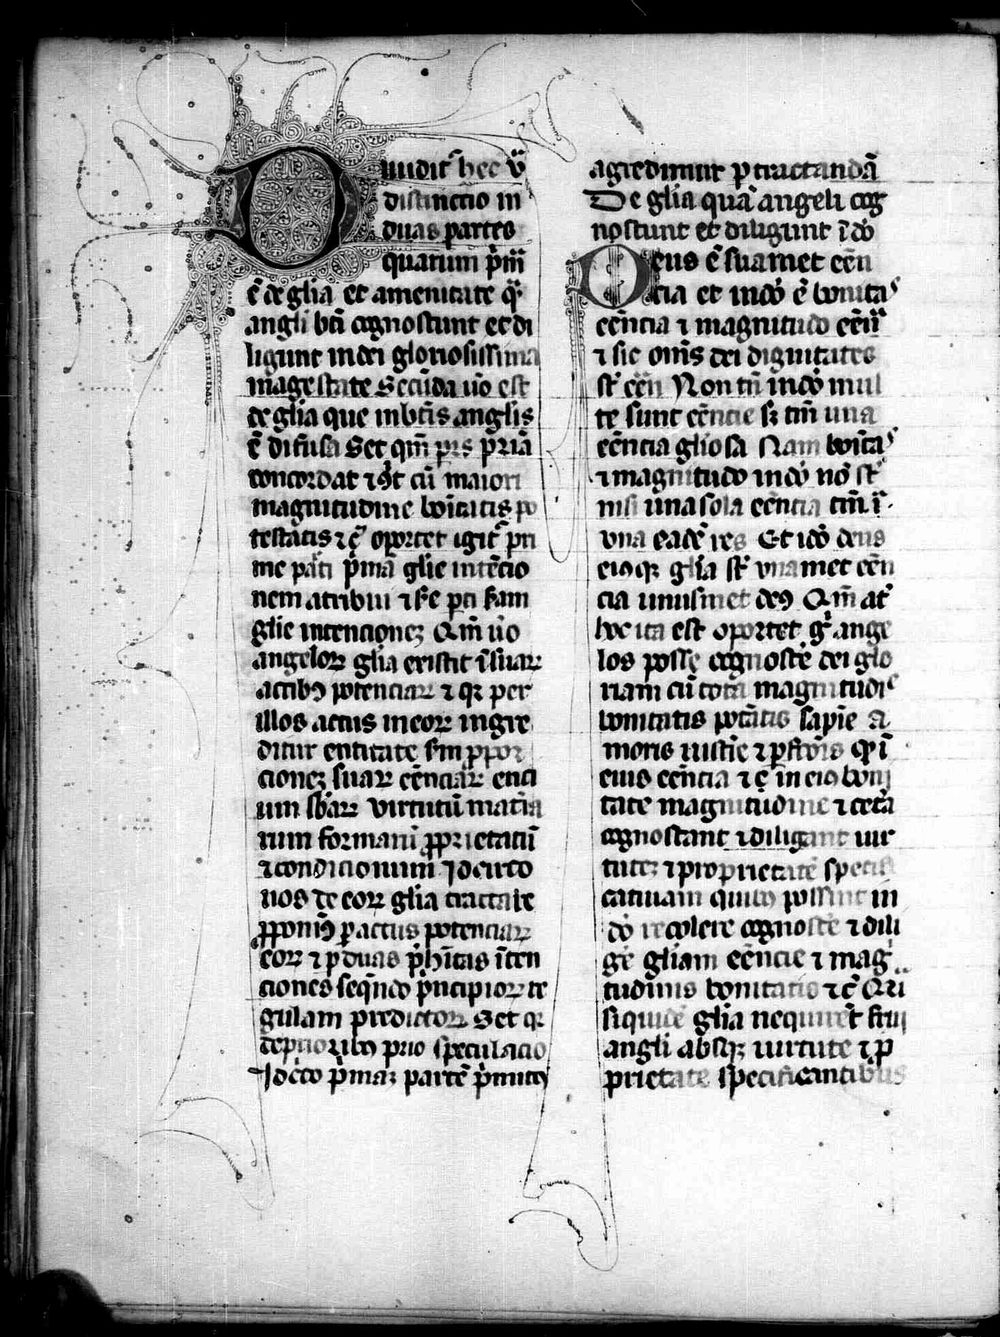 Diuidit͛ hec v̄
distinctio in
duas partes
quarum p̄ma
ē de glia et amenitate q̄
angli bt̄i cognoscunt et di
ligunt in dei gloriosissima
mage state Secūda uō est
de glia que in btīs anglis
ē difusa Set qm̄ prs p̄ria
concordat cū maiori
magnitudine boītatis po
testatis ⁊ cͤ oportet igit͛ pri
me pāti p̄ma glie intēcio
nem atribui ⁊ sc̄e pti scām
glie intencionez Qm̄ uō
angeloꝝ glia existit ī suaꝝ
actibꝯ potenciaꝝ ⁊ qꝛ per
illos actus in eoꝝ ingre
ditur entitate sm̄ ꝓpor
cionez suaꝝ eēnciaꝝ enci
um sb̄aꝝ virtutū mat̄ia
rum formarū ꝓprietatū
⁊ condicionum Idcirco
nos de eoꝝ glia tractare
ꝓponimꝯ ꝑ actus potenciaꝝ
eoꝝ ⁊ ꝑ duas p̄hītas īten
ciones seqn̄do p̄ncipioꝝ re
gulam predictoꝝ Set qꝛ
de prioribꝯ prio speculacio
Idc̄co p̄maꝫ partē p̄mitꝯ
agredimur ꝑtractandā
De glia quā angeli cog
noscunt et diligunt ī dō
Deus ē suamet eēn
cia et in dō ē bonitas
eēncia ⁊ magnitudo eēn̄
⁊ sic oīns dei dignitates
st̄ eēn̄ Non tn̄ in dō mul
te sunt eēncie sꝫ tm̄ una
eēncia gliosa Nam boītas
⁊ magnitudo in dō nō st̄
nisi una sola eēncia tm̄ ī
una eadē res Et idō deus
eiusqꝫ glia st̄ vnamet eēn
cia unusmet deꝯ Qm̄ at̄
hoc ita est oportet gͦ ange
los posse cognosc̄e dei glo
riam cū tota magnitudīe
bonitatis potātis sapīe a
moris iustīe ⁊ ꝑfc̄ois qͥ ī
eius eēncia ⁊ cͤ in eiꝯ boni
tate magnitudine ⁊ cet̄a
cognoscant ⁊ diligant uir
tuteꝫ ⁊ proprietatē specifi
catiuam quibꝯ possint in
dō recolere cognosc̄e ⁊ dili
gē gliam eēncie ⁊ mag
tudinis bonitatis ⁊ cͤ Qui
siquidē glia nequirēt frui
angli absqꝫ uirtute ⁊ ꝓ
prietate specificantibus